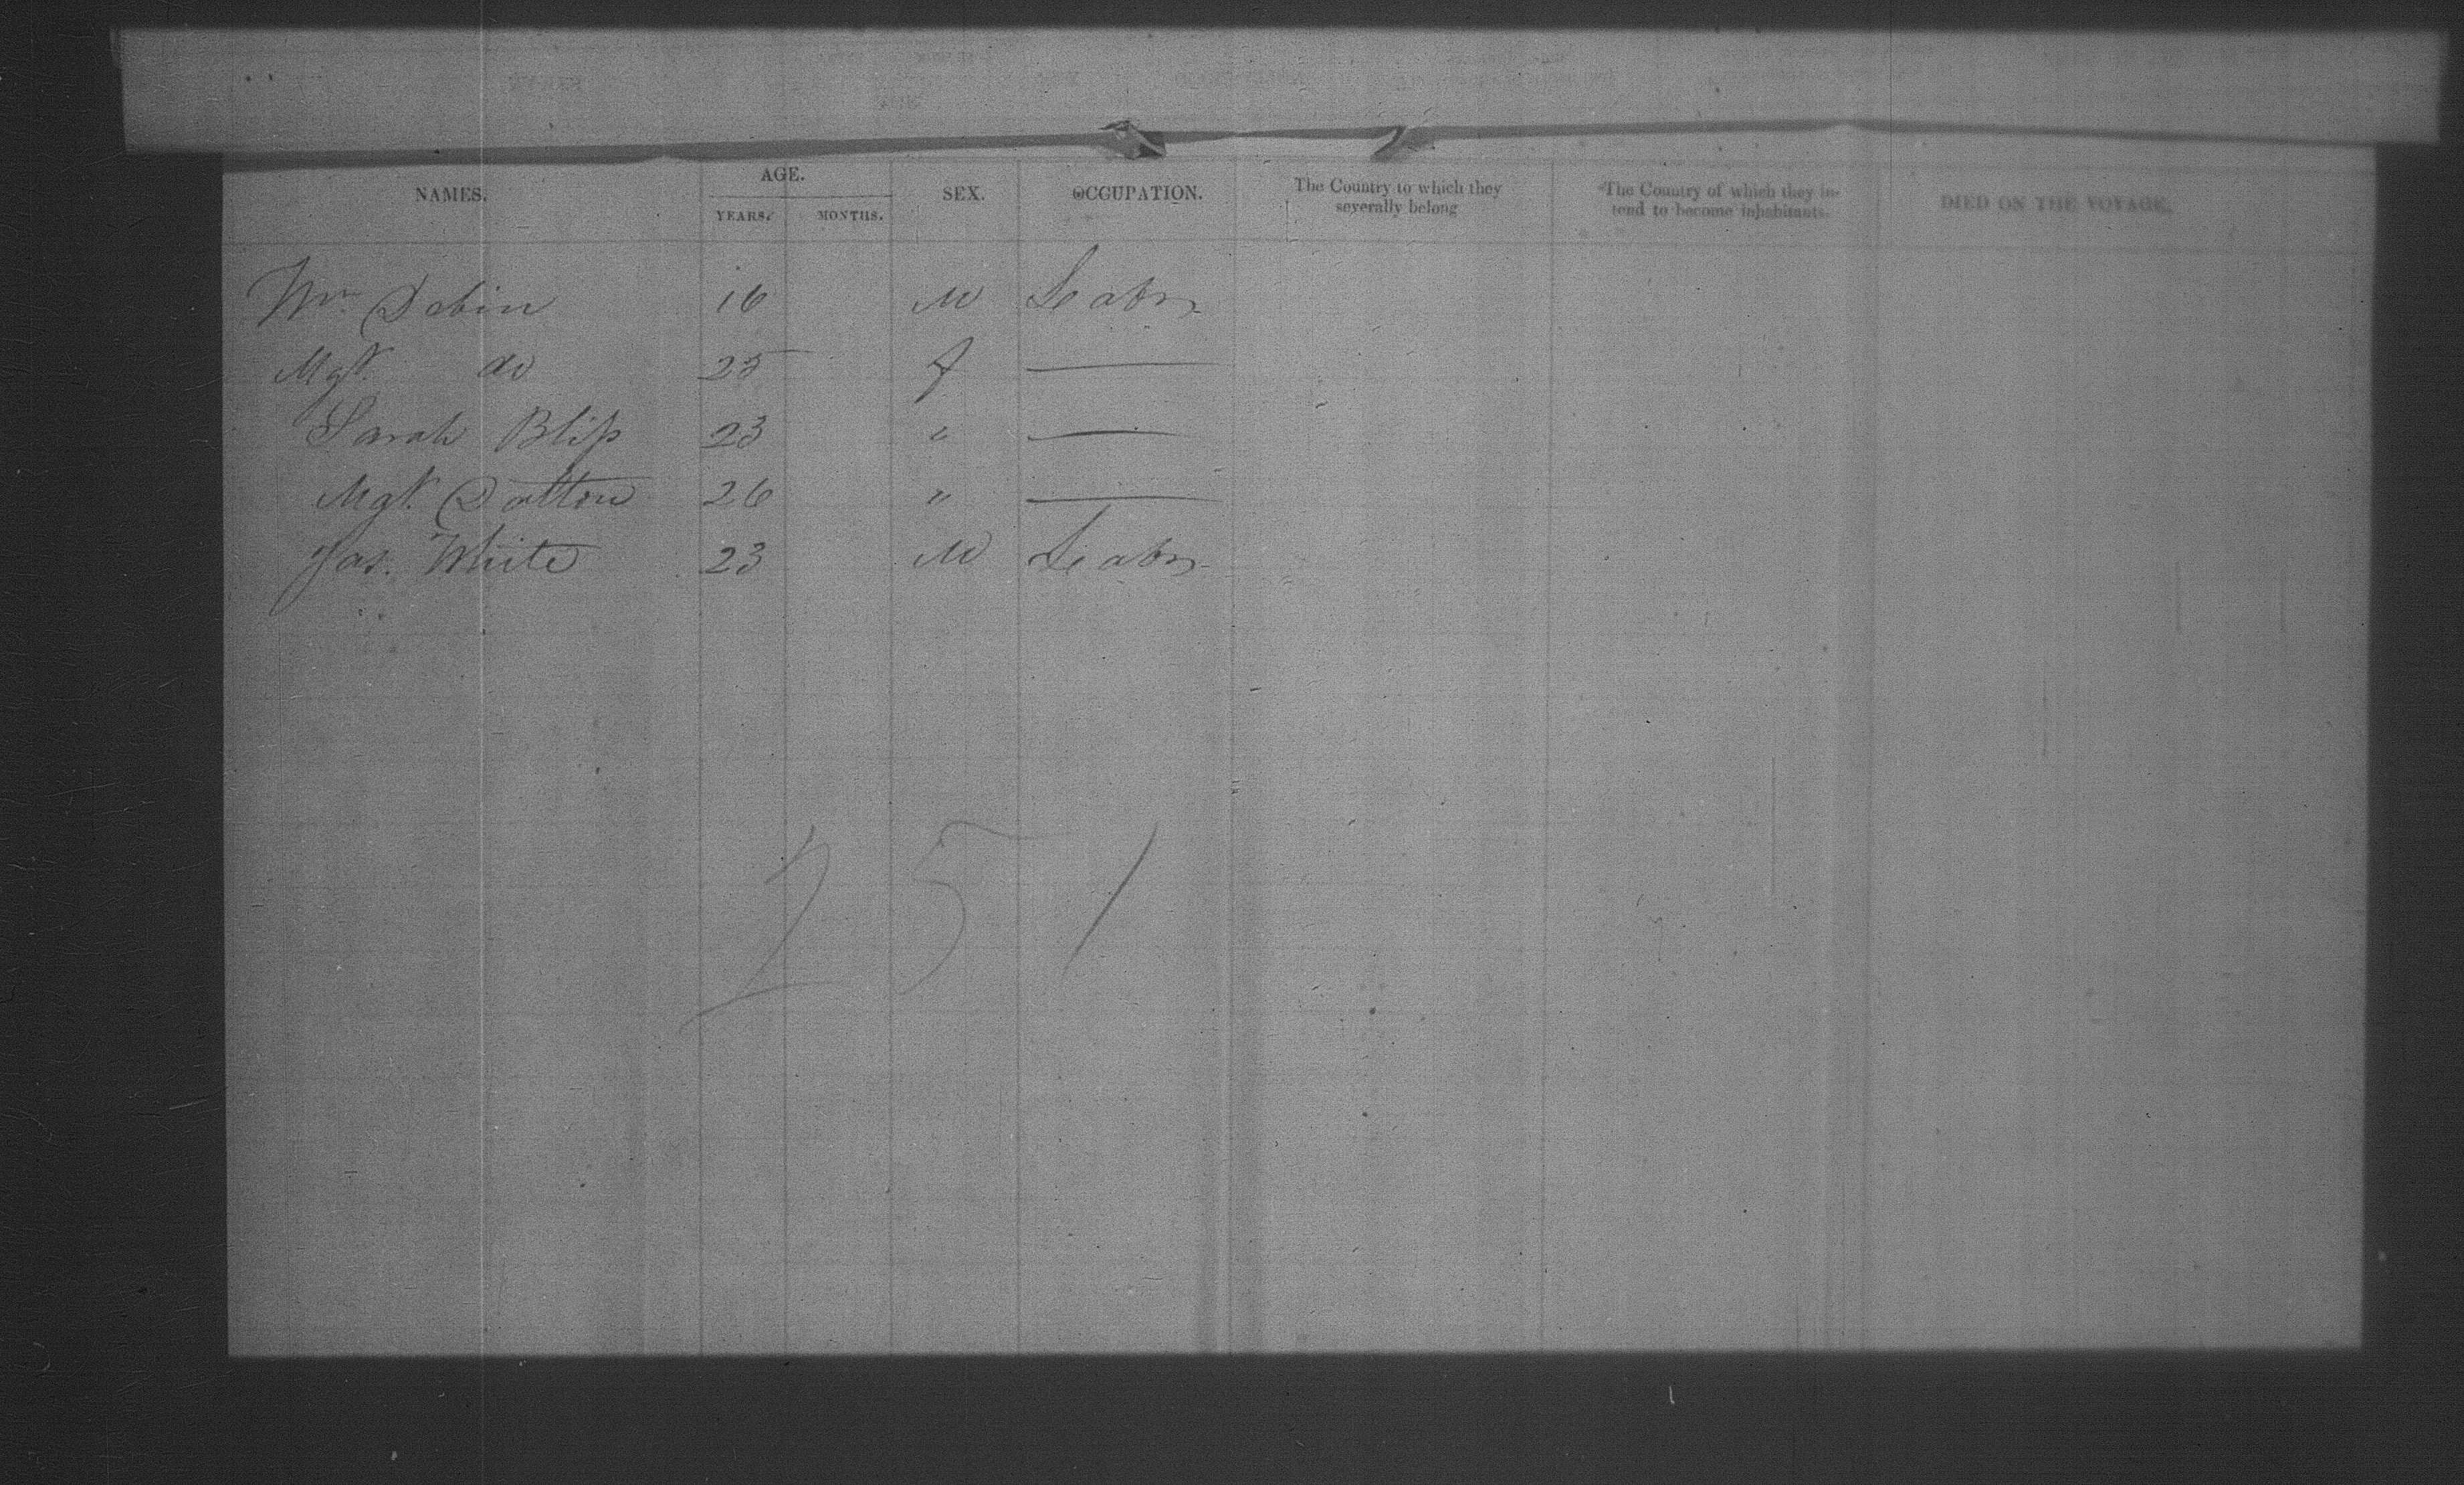 NAMES. AGE. SEX. OCCUPATION. The Country to which they severally belong The Country of which they intend to become inhabitants. DIED ON THE VOYAGE.
YEARS. MONTHS.
Wm. Dobin 16 M Labr
Mgt. do 25 f
Sarah Bliss 23 "
Mgt. Dalton 26 "
Jas. White 23 M Labr
251